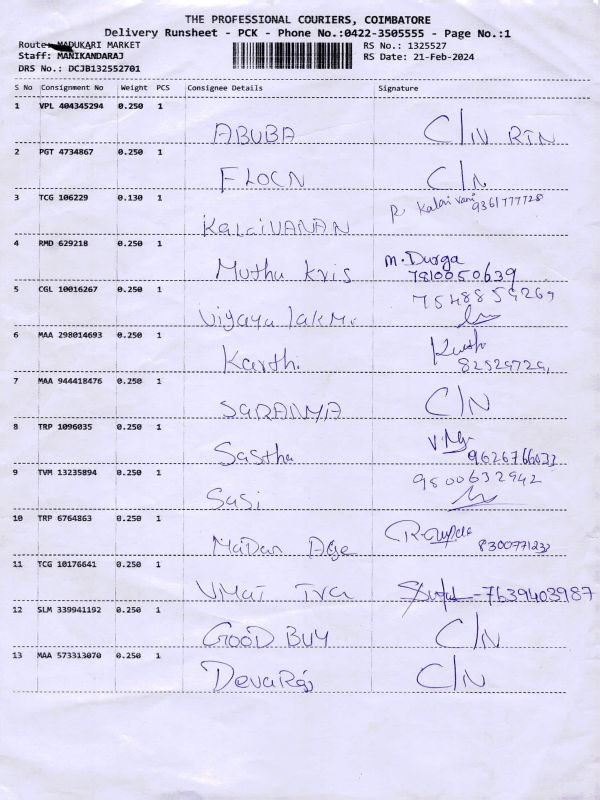 THE PROFESSIONAL COURIERS, COIMBATORE
Delivery Runsheet - PCK - Phone No.:0422-3505555 - Page No.:1
Route: MADUKARI MARKET RS No.: 1325527
Staff: MANIKANDARAJ RS Date: 21-Feb-2024
DRS No.: DCJB132552701
S No Consignment No Weight PCS Consignee Details Signature
1 VPL 404345294 0.250 1
ABUBA C/N RTN
2 PGT 4734867 0.250 1
FLOCN C/N
3 TCG 106229 0.130 1 P. Kalai vani 9361777728
KALAIVANAN
4 RMD 629218 0.250 1
Muthu Kris M. Durga
7810050639
5 CGL 10016267 0.250 1 7548859269
Vijaya lakMi
6 MAA 298014693 0.250 1
Karthi
7 MAA 944418476 0.250 1
SARANYA C/N
8 TRP 1096035 0.250 1
Sastha 9626766033
9 TVM 13235894 0.250 1 9500632942
Sasi
10 TRP 6764863 0.250 1
Madan 8300971233
11 TCG 10176641 0.250 1
-7639403987
12 SLM 339941192 0.250 1
GOOD BUY C/N
13 MAA 573313070 0.250 1
DevaRaj C/N